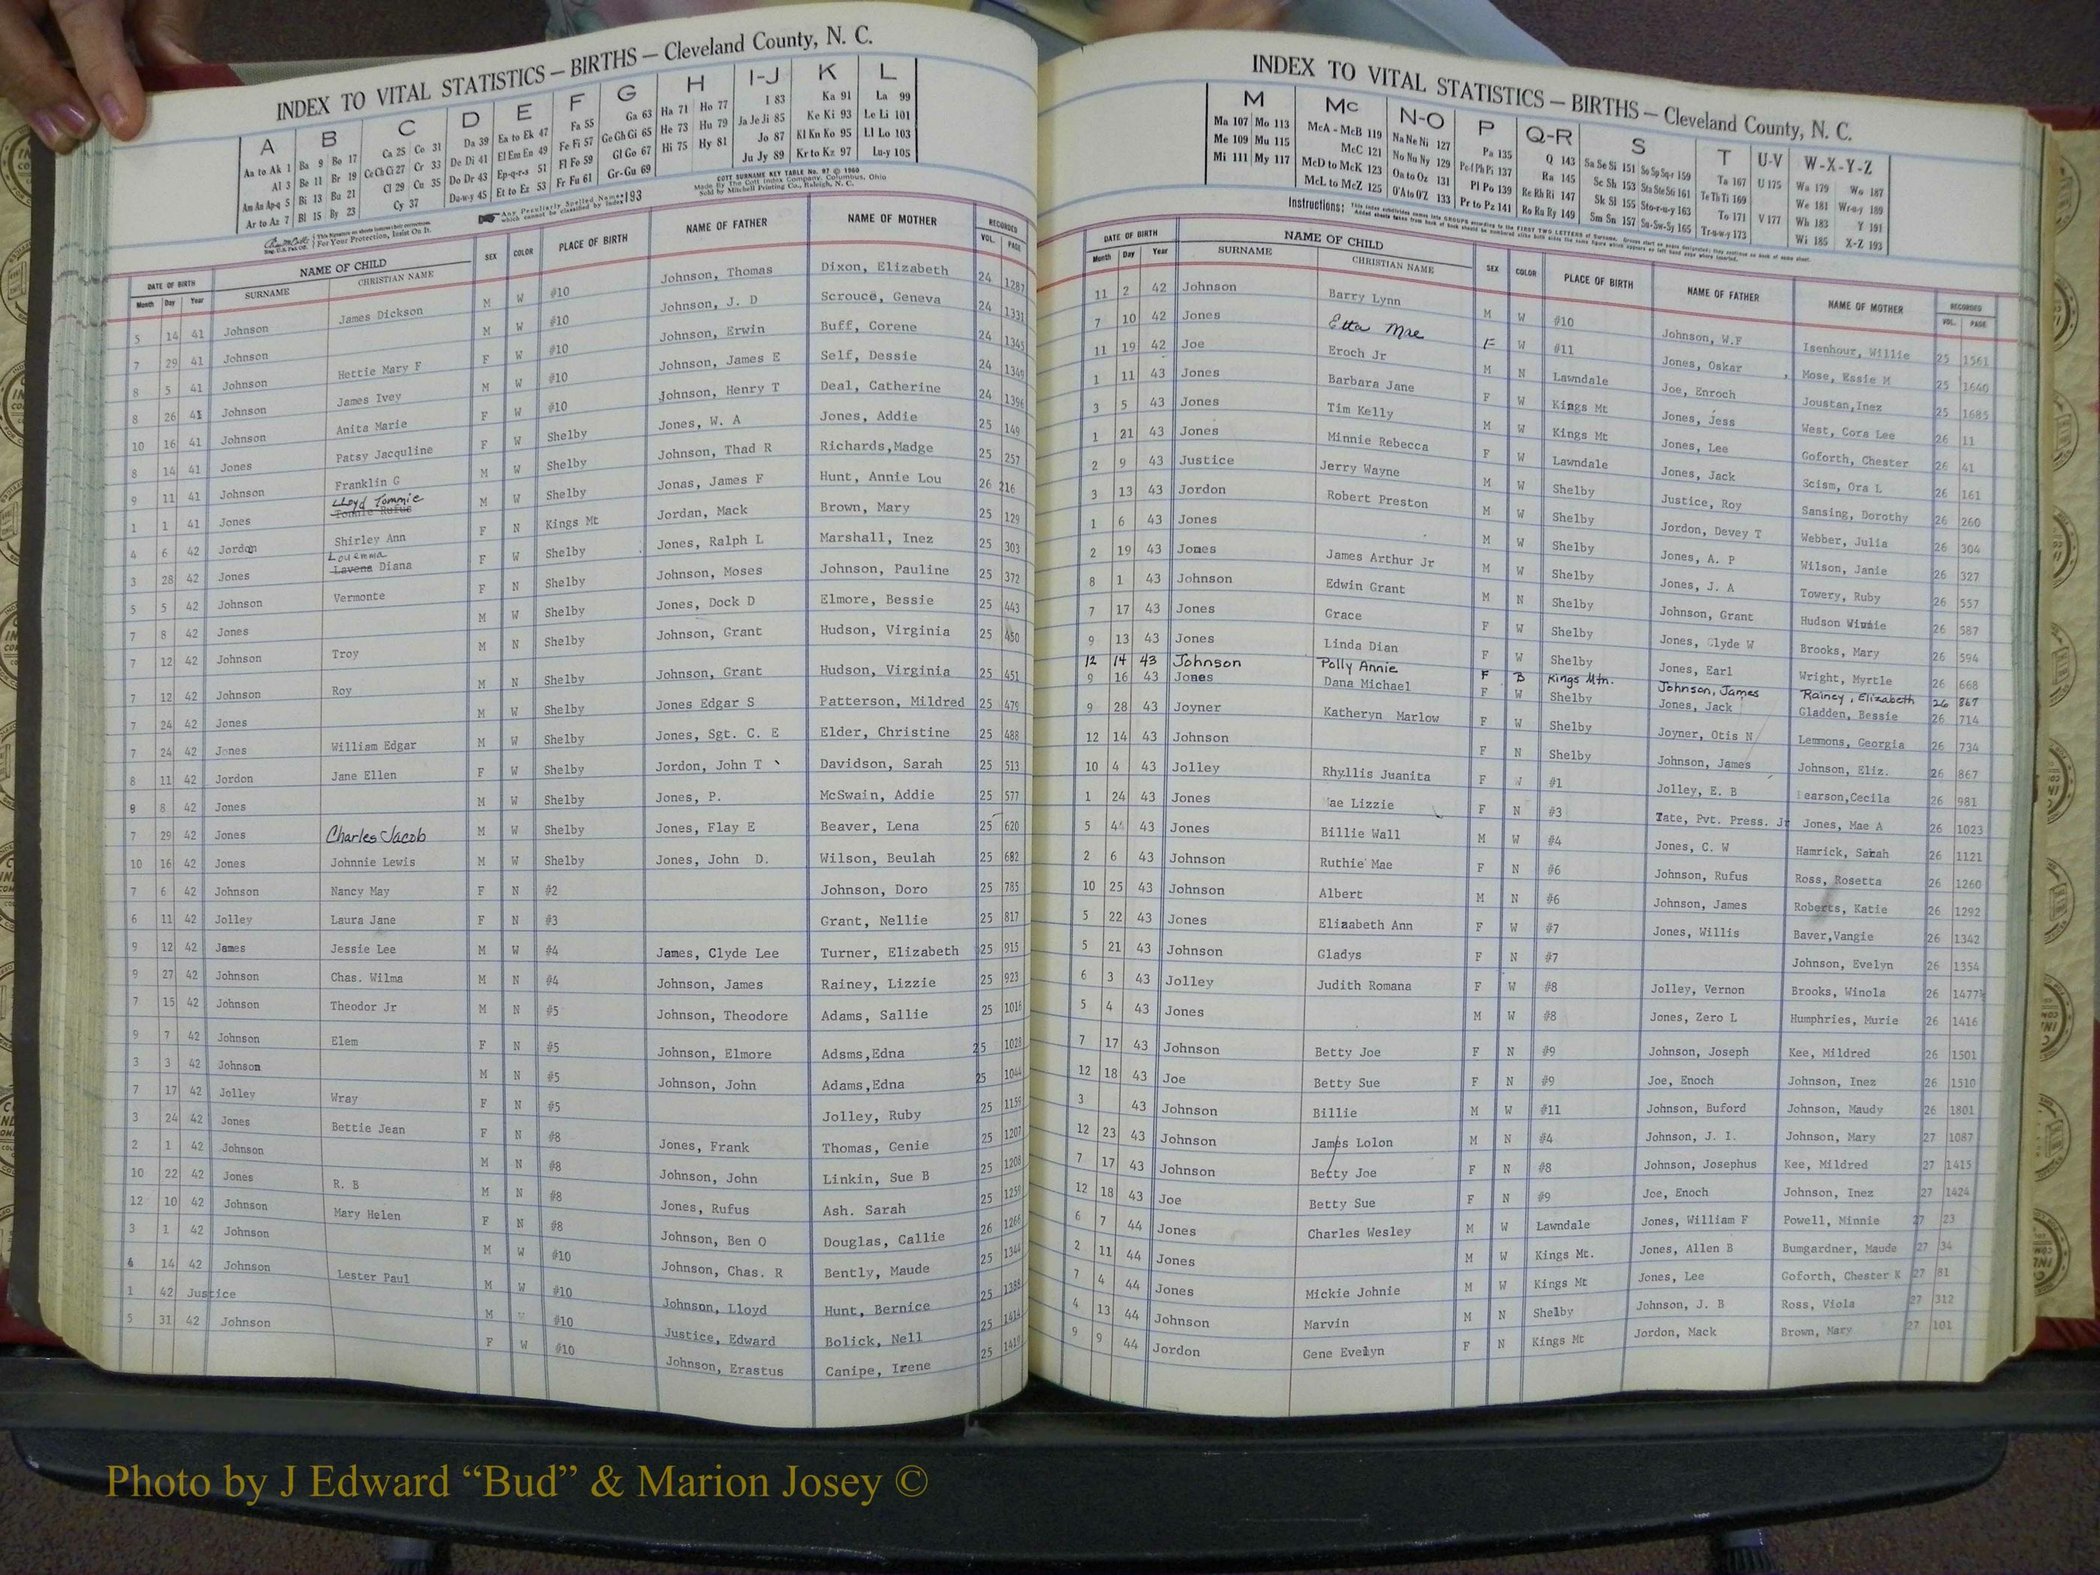 INDEX TO VITAL STATISTICS — BIRTHS — Cleveland County, N. C.
A B C D E F G H I-J K L
Aa to Ak 1 Ba 9 Bo 17 Ca 25 Co 31 Da 39 Ea to Ek 47 Fa 55 Ga 63 Ha 71 Ho 77 I 83 Ka 91 La 99
Al 3 Be 11 Br 19 Ce Ch Ci 27 Cr 33 De Di 41 El Em En 49 Fe Fi 57 Ge Gh Gi 65 He 73 Hu 79 Ja Je Ji 85 Ke Ki 93 Le Li 101
Am An Ap-q 5 Bi 13 Bu 21 Cl 29 Cu 35 Do Dr 43 Ep-q-r-s 51 Fl Fo 59 Gl Go 67 Hi 75 Hy 81 Jo 87 Kl Kn Ko 95 Ll Lo 103
Ar to Az 7 Bl 15 By 23 Cy 37 Du-w-y 45 Et to Ez 53 Fr Fu 61 Gr-Gu 69 Ju Jy 89 Kr to Kz 97 Lu-y 105
Any Peculiarly Spelled Names which cannot be classified by index 193
COTT SURNAME KEY TABLE No. 97 © 1960
Made By The Cott Index Company, Columbus, Ohio
Sold by Mitchell Printing Co., Raleigh, N. C.
For Your Protection, Insist On It.
DATE OF BIRTH NAME OF CHILD SEX COLOR PLACE OF BIRTH NAME OF FATHER NAME OF MOTHER RECORDED
Month Day Year SURNAME CHRISTIAN NAME VOL. PAGE
5 14 41 Johnson James Dickson M W #10 Johnson, Thomas Dixon, Elizabeth 24 1287
7 29 41 Johnson M W #10 Johnson, J. D Scrouce, Geneva 24 1331
8 5 41 Johnson Hettie Mary F F W #10 Johnson, Erwin Buff, Corene 24 1345
8 26 41 Johnson James Ivey M W #10 Johnson, James E Self, Dessie 24 1349
10 16 41 Johnson Anita Marie F W #10 Johnson, Henry T Deal, Catherine 24 1396
8 14 41 Jones Patsy Jacquline F W Shelby Jones, W. A Jones, Addie 25 149
9 11 41 Johnson Franklin G M W Shelby Johnson, Thad R Richards,Madge 25 257
1 1 41 Jones Lloyd Tommie Tommie Rufus M W Shelby Jonas, James F Hunt, Annie Lou 26 216
4 6 42 Jordon Shirley Ann F N Kings Mt Jordan, Mack Brown, Mary 25 129
3 28 42 Jones Lavena Diana F W Shelby Jones, Ralph L Marshall, Inez 25 303
5 5 42 Johnson Vermonte F N Shelby Johnson, Moses Johnson, Pauline 25 372
7 8 42 Jones M W Shelby Jones, Dock D Elmore, Bessie 25 443
7 12 42 Johnson Troy M N Shelby Johnson, Grant Hudson, Virginia 25 450
7 12 42 Johnson Roy M N Shelby Johnson, Grant Hudson, Virginia 25 451
7 24 42 Jones M W Shelby Jones Edgar S Patterson, Mildred 25 479
7 24 42 Jones William Edgar M W Shelby Jones, Sgt. C. E Elder, Christine 25 488
8 11 42 Jordon Jane Ellen F W Shelby Jordon, John T Davidson, Sarah 25 513
9 8 42 Jones M W Shelby Jones, P. McSwain, Addie 25 577
7 29 42 Jones Charles Jacob M W Shelby Jones, Flay E Beaver, Lena 25 620
10 16 42 Jones Johnnie Lewis M W Shelby Jones, John D. Wilson, Beulah 25 682
7 6 42 Johnson Nancy May F N #2 Johnson, Doro 25 785
6 11 42 Jolley Laura Jane F N #3 Grant, Nellie 25 817
9 12 42 James Jessie Lee M W #4 James, Clyde Lee Turner, Elizabeth 25 915
9 27 42 Johnson Chas. Wilma M N #4 Johnson, James Rainey, Lizzie 25 923
7 15 42 Johnson Theodor Jr M N #5 Johnson, Theodore Adams, Sallie 25 1016
9 7 42 Johnson Elem F N #5 Johnson, Elmore Adsms,Edna 25 1028
3 3 42 Johnson M N #5 Johnson, John Adams,Edna 25 1044
7 17 42 Jolley Wray F N #5 Jolley, Ruby 25 1159
3 24 42 Jones Bettie Jean F N #8 Jones, Frank Thomas, Genie 25 1207
2 1 42 Johnson M N #8 Johnson, John Linkin, Sue B 25 1208
10 22 42 Jones R. B M N #8 Jones, Rufus Ash. Sarah 25 1259
12 10 42 Johnson Mary Helen F N #8 Johnson, Ben O Douglas, Callie 26 1266
3 1 42 Johnson M W #10 Johnson, Chas. R Bently, Maude 25 1344
4 14 42 Johnson Lester Paul M W #10 Johnson, Lloyd Hunt, Bernice 25 1388
1 42 Justice M W #10 Justice, Edward Bolick, Nell 25 1414
5 31 42 Johnson F W #10 Johnson, Erastus Canipe, Irene 25 1419
INDEX TO VITAL STATISTICS — BIRTHS — Cleveland County, N. C.
M Mc N-O P Q-R S T U-V W-X-Y-Z
Ma 107 Mo 113 McA - McB 119 Na Ne Ni 127 Pa 135 Q 143 Sa Se Si 151 So Sp Sq-r 159 Ta 167 U 175 Wa 179 Wo 187
Me 109 Mu 115 McC 121 No Nu Ny 129 Pe Pf Ph Pi 137 Ra 145 Sc Sh 153 Sta Ste Sti 161 Te Th Ti 169 We 181 Wr-u-y 189
Mi 111 My 117 McD to McK 123 Oa to Oz 131 Pl Po 139 Re Rh Ri 147 Sk Sl 155 Sto-r-u-y 163 To 171 V 177 Wh 183 Y 191
McL to McZ 125 O'A to O'Z 133 Pr to Pz 141 Ro Ru Ry 149 Sm Sn 157 Su-Sw-Sy 165 Tr-u-w-y 173 Wi 185 X-Z 193
Instructions:
DATE OF BIRTH NAME OF CHILD SEX COLOR PLACE OF BIRTH NAME OF FATHER NAME OF MOTHER RECORDED
Month Day Year SURNAME CHRISTIAN NAME VOL. PAGE
11 2 42 Johnson Barry Lynn M W #10 Johnson, W.F Isenhour, Willie 25 1561
7 10 42 Jones Etta Mae F W #11 Jones, Oskar Mose, Essie M 25 1640
11 19 42 Joe Eroch Jr M N Lawndale Joe, Enroch Joustan,Inez 25 1685
1 11 43 Jones Barbara Jane F W Kings Mt Jones, Jess West, Cora Lee 26 11
3 5 43 Jones Tim Kelly M W Kings Mt Jones, Lee Goforth, Chester 26 41
1 21 43 Jones Minnie Rebecca F W Lawndale Jones, Jack Scism, Ora L 26 161
2 9 43 Justice Jerry Wayne M W Shelby Justice, Roy Sansing, Dorothy 26 260
3 13 43 Jordon Robert Preston M W Shelby Jordon, Devey T Webber, Julia 26 304
1 6 43 Jones M W Shelby Jones, A. P Wilson, Janie 26 327
2 19 43 Jones James Arthur Jr M W Shelby Jones, J. A Towery, Ruby 26 557
8 1 43 Johnson Edwin Grant M N Shelby Johnson, Grant Hudson Winnie 26 587
7 17 43 Jones Grace F W Shelby Jones, Clyde W Brooks, Mary 26 594
9 13 43 Jones Linda Dian F W Shelby Jones, Earl Wright, Myrtle 26 668
12 14 43 Johnson Polly Annie F B Kings Mtn. Johnson, James Rainey, Elizabeth 26 867
9 16 43 Jones Dana Michael F W Shelby Jones, Jack Gladden, Bessie 26 714
9 28 43 Joyner Katheryn Marlow F W Shelby Joyner, Otis N Lemmons, Georgia 26 734
12 14 43 Johnson F N Shelby Johnson, James Johnson, Eliz. 26 867
10 4 43 Jolley Rhyllis Juanita F W #1 Jolley, E. B earson,Cecila 26 981
1 24 43 Jones ae Lizzie F N #3 Tate, Pvt. Press. Jr Jones, Mae A 26 1023
5 4 43 Jones Billie Wall M W #4 Jones, C. W Hamrick, Sarah 26 1121
2 6 43 Johnson Ruthie Mae F N #6 Johnson, Rufus Ross, Rosetta 26 1260
10 25 43 Johnson Albert M N #6 Johnson, James Roberts, Katie 26 1292
5 22 43 Jones Elizabeth Ann F W #7 Jones, Willis Baver,Vangie 26 1342
5 21 43 Johnson Gladys F N #7 Johnson, Evelyn 26 1354
6 3 43 Jolley Judith Romana F W #8 Jolley, Vernon Brooks, Winola 26 1477½
5 4 43 Jones M W #8 Jones, Zero L Humphries, Murie 26 1416
7 17 43 Johnson Betty Joe F N #9 Johnson, Joseph Kee, Mildred 26 1501
12 18 43 Joe Betty Sue F N #9 Joe, Enoch Johnson, Inez 26 1510
3 43 Johnson Billie M W #11 Johnson, Buford Johnson, Maudy 26 1801
12 23 43 Johnson James Lolon M N #4 Johnson, J. I. Johnson, Mary 27 1087
7 17 43 Johnson Betty Joe F N #8 Johnson, Josephus Kee, Mildred 27 1415
12 18 43 Joe Betty Sue F N #9 Joe, Enoch Johnson, Inez 27 1424
6 7 44 Jones Charles Wesley M W Lawndale Jones, William F Powell, Minnie 27 23
2 11 44 Jones M W Kings Mt. Jones, Allen B Bumgardner, Maude 27 34
7 4 44 Jones Mickie Johnie M W Kings Mt Jones, Lee Goforth, Chester K 27 81
4 13 44 Johnson Marvin M N Shelby Johnson, J. B Ross, Viola 27 312
9 9 44 Jordon Gene Evelyn F N Kings Mt Jordon, Mack Brown, Mary 27 101
Photo by J Edward “Bud” & Marion Josey ©